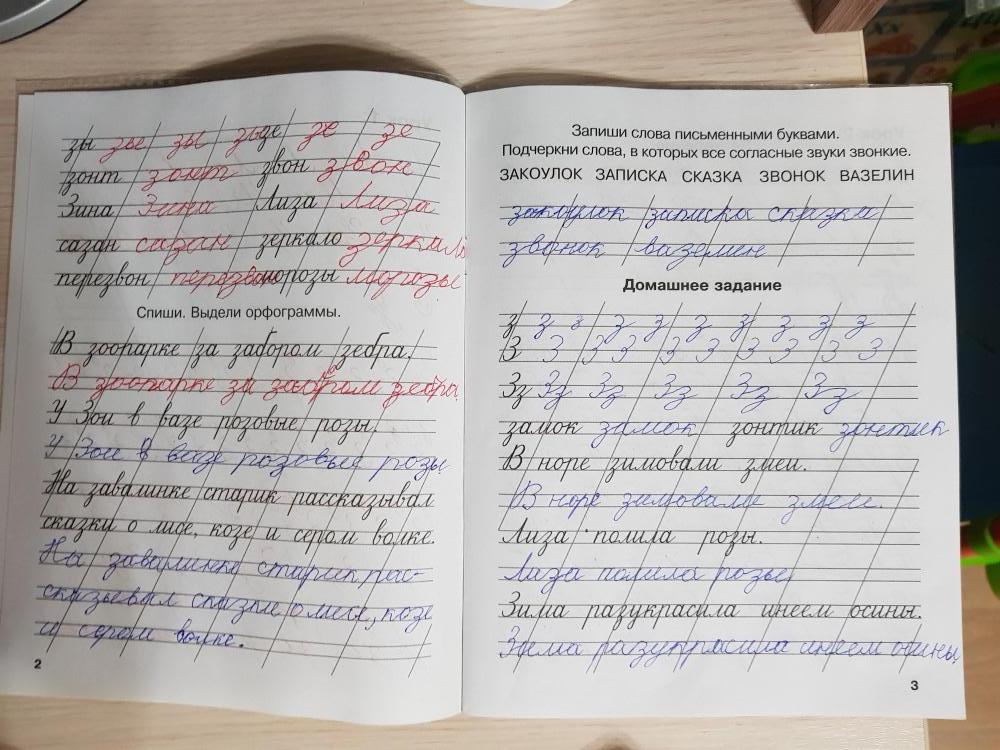 зы зы зы зы зе зе зе
зонт зонт звон звон
Зина Зина Лиза Лиза
сазан сазан зеркало зеркало
перезвон перезвон морозы морозы
Спиши. Выдели орфограммы.
В зоопарке за забором зебра.
В зоопарке за забором зебра.
У Зои в вазе розовые розы.
У Зои в вазе розовые розы
На завалинке старик рассказывал
сказки о лисе, козе и сером волке.
На завалинке старик рас-
сказывал сказки о лисе, козе
и сером волке.
2
Запиши слова письменными буквами.
Подчеркни слова, в которых все согласные звуки звонкие.
ЗАКОУЛОК ЗАПИСКА СКАЗКА ЗВОНОК ВАЗЕЛИН
закоулок записка сказка
звонок вазелин
Домашнее задание
з з з з з з з з з
З З З З З З З З З З
Зз Зз Зз Зз Зз Зз
замок замок зонтик зонтик
В норе зимовали змеи.
В норе зимовали змеи.
Лиза полила розы.
Лиза полила розы
Зима разукрасила инеем осины.
Зима разукрасила инеем осины
3